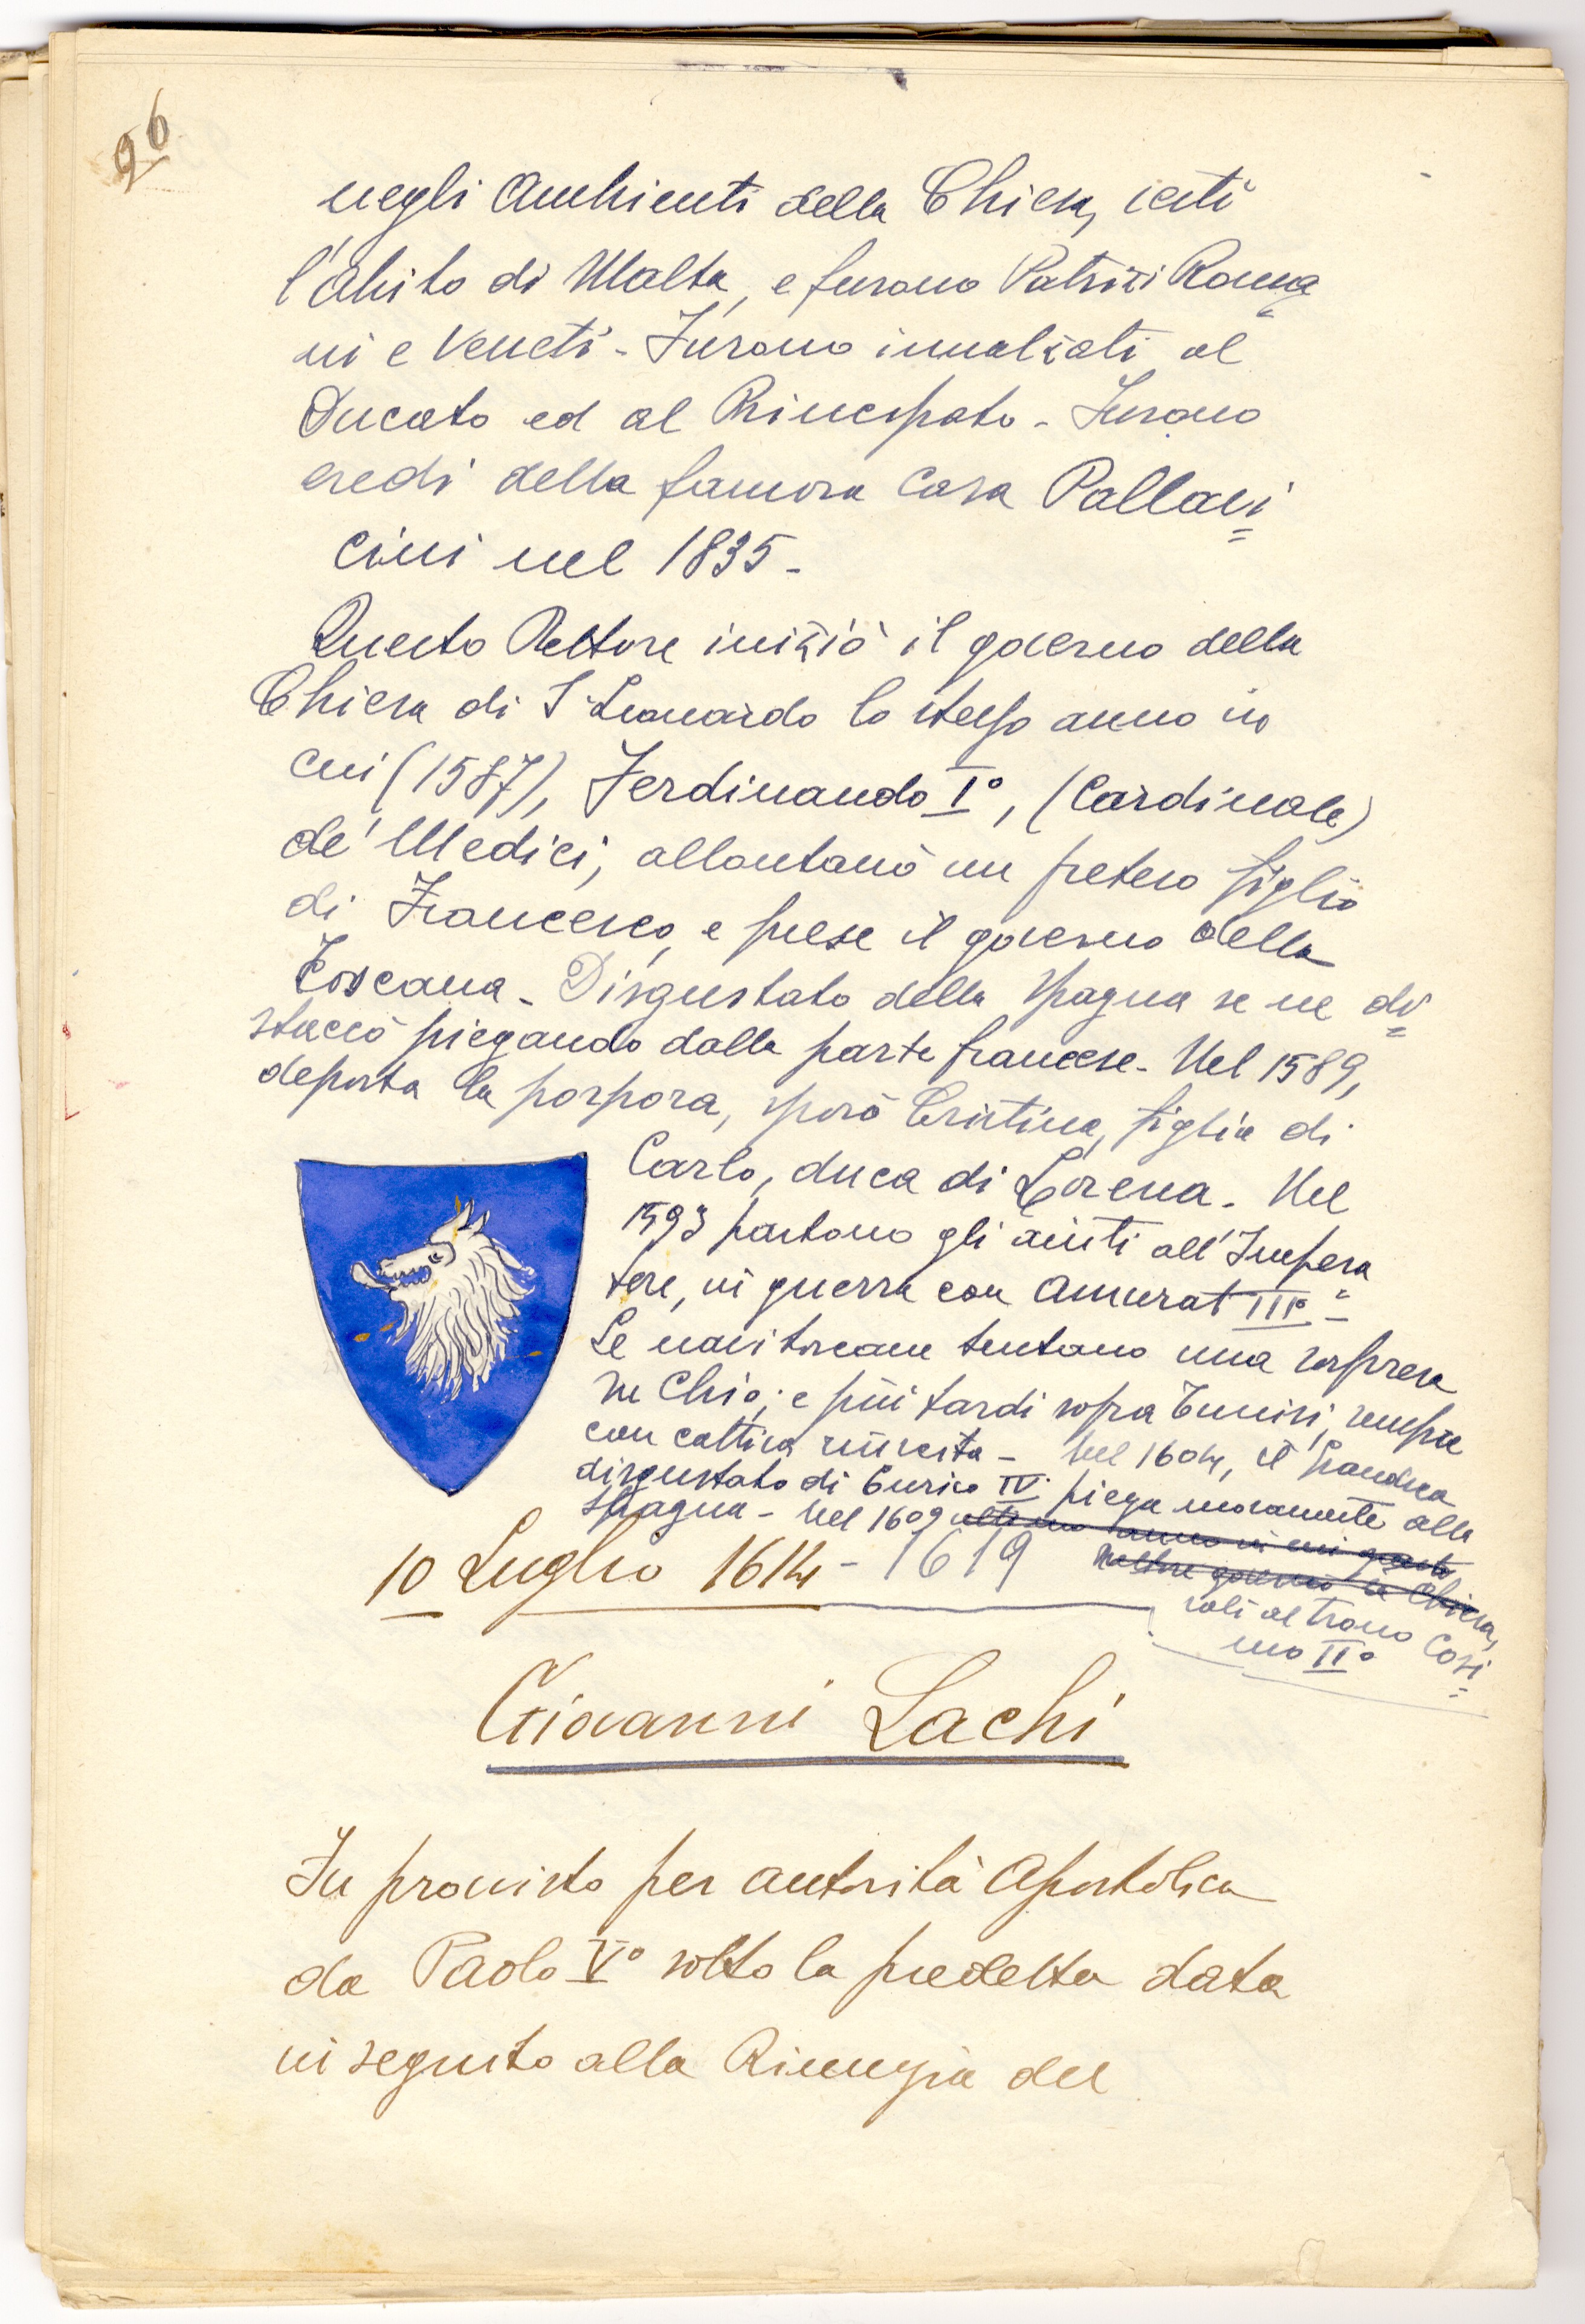 26
negli Ambienti della Chiesa, vestì
l'Abito di Malta, e furono Patrizi Roma=
ni e Veneti - Furono innalzati al
Ducato ed al Principato - Furono
eredi della famosa Casa Pallavi=
cini nel 1835 -
Questo Rettore iniziò il governo della
Chiesa di S. Leonardo lo stesso anno in
cui (1587), Ferdinando I°, (Cardinale)
de' Medici, allontanò un preteso figlio
di Francesco, e prese il governo della
Toscana - Disgustato della Spagna se ne di=
staccò piegando dalla parte francese - Nel 1589,
deposta la porpora, sposò Cristina, figlia di
Carlo, duca di Lorena - Nel
1593 partono gli aiuti all'Impera=
tore, in guerra con Amurat III° -
Le navi toscane tentano una sorpresa
su Chio; e più tardi sopra Tunisi, sempre
con cattiva riuscita - Nel 1604, il Granduca
disgustato di Enrico IV. piega nuovamente alla
Spagna - Nel 1609 ultimo anno in cui questo
Rettore governò la Chiesa,
salì al trono Cosi=
mo II°
10 Luglio 1614 - 1619
Giovanni Lachi
Fu provisto per autorità Apostolica
da Paolo V° sotto la predetta data
in seguito alla Rinunzia del